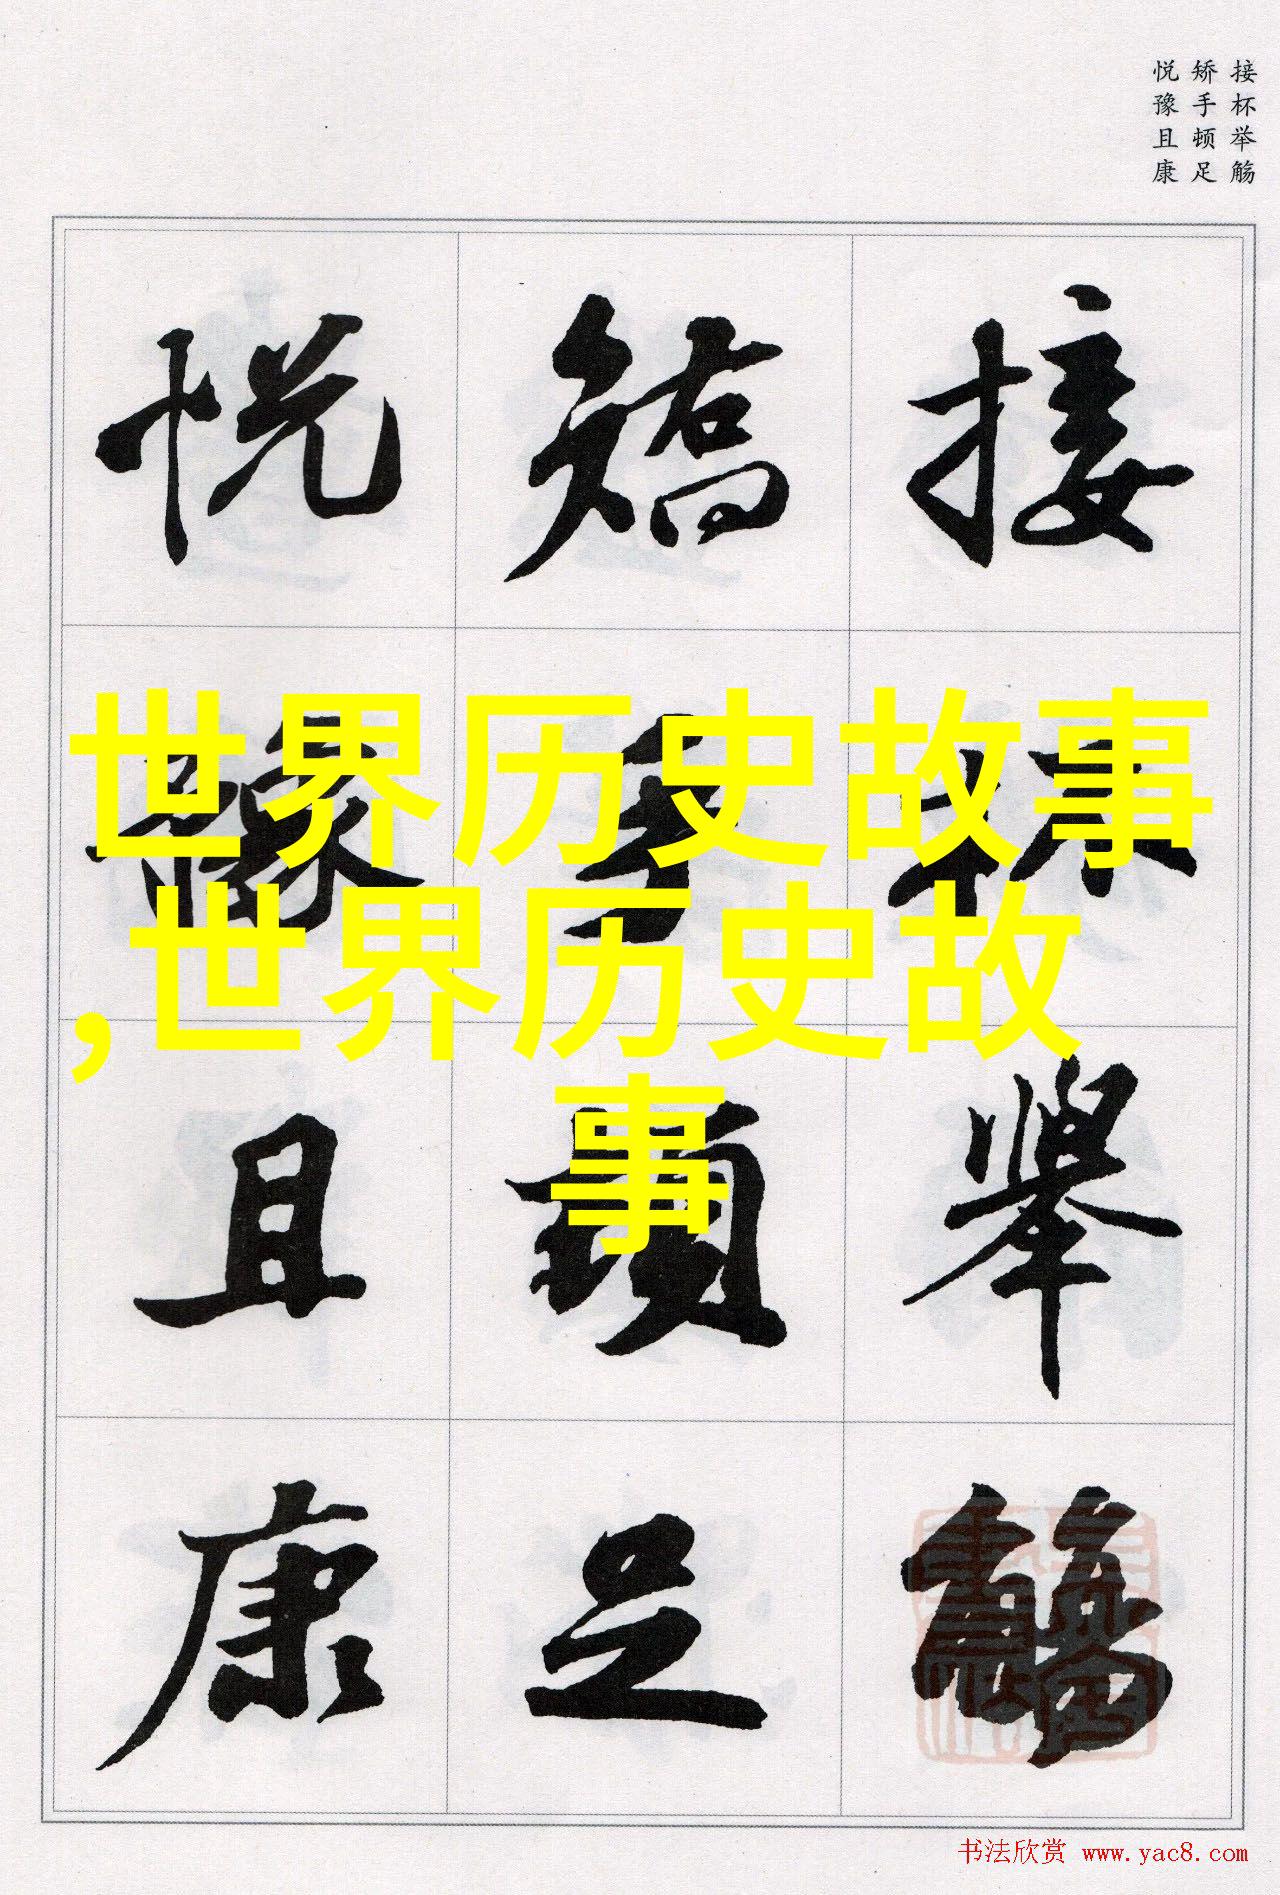 接杯举觞
矫手顿足
悦豫且康
接杯舉觴
矯手頓足
悦豫且康
世界历史故事
,世界历史故
事
书法欣赏 www.yac8.com